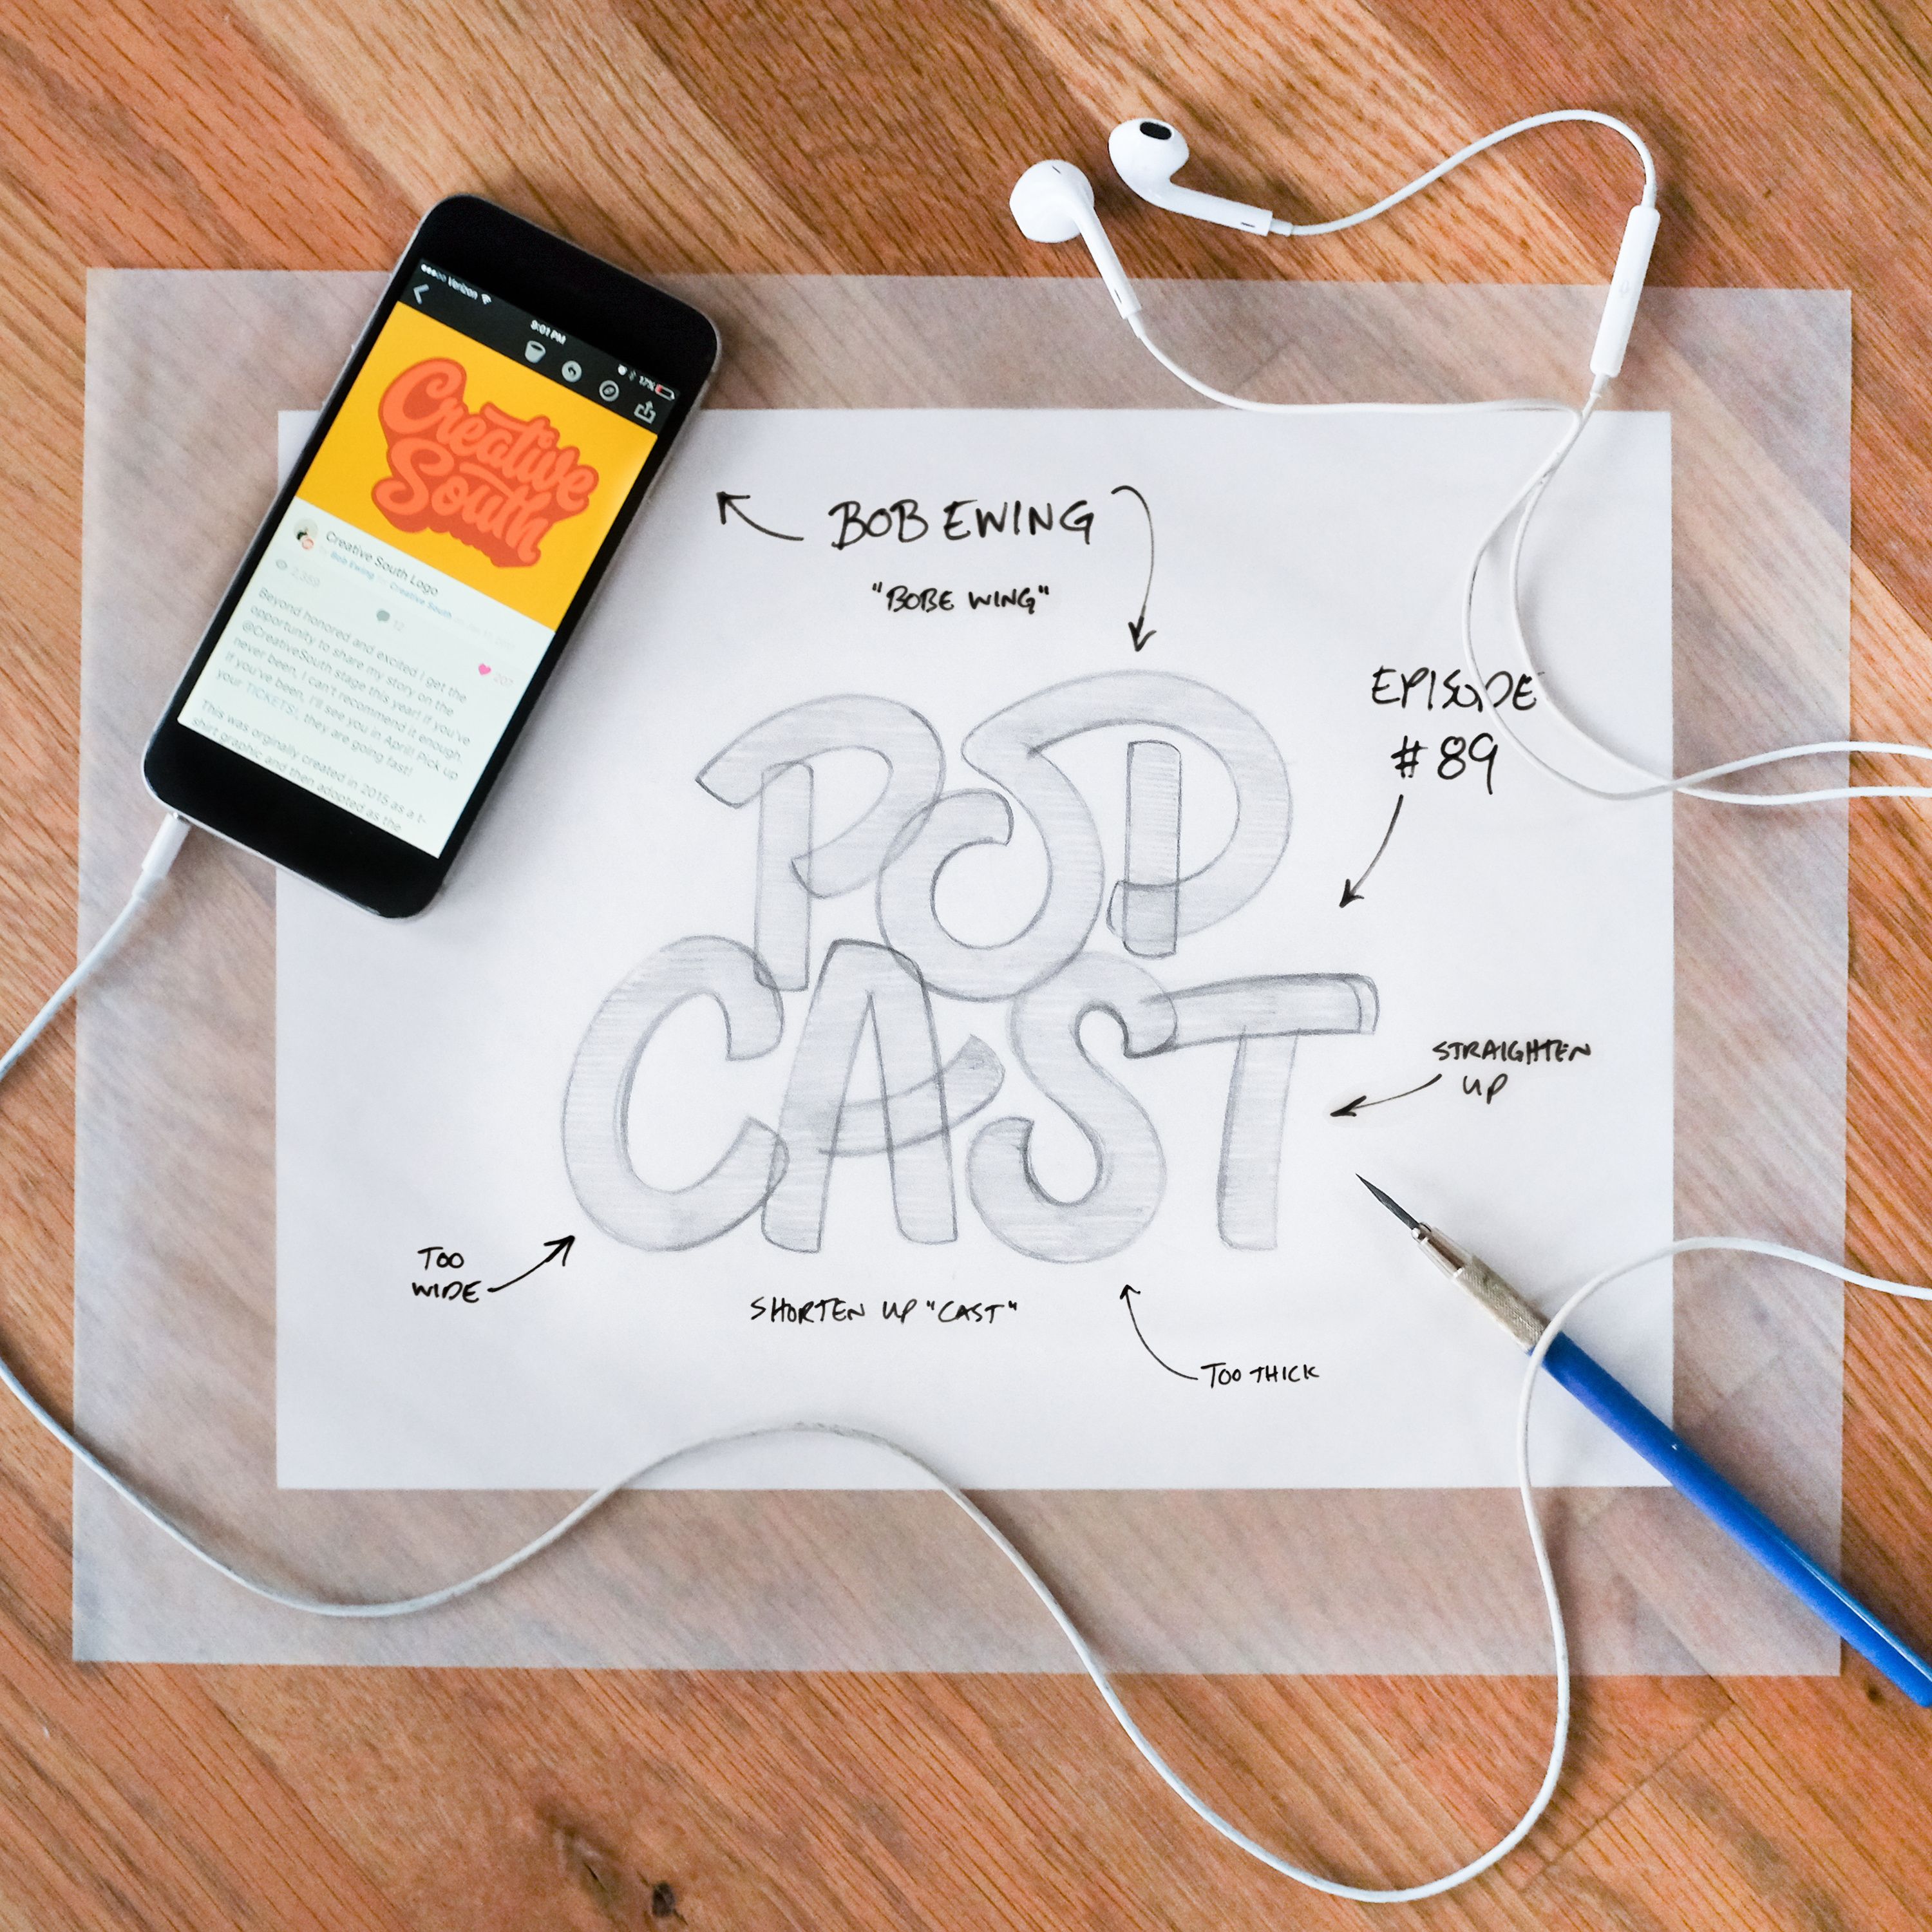 Verizon
9:01 PM
17%
Creative
South
Creative South Logo
Bob Ewing for Creative South
2,359
12
207
Beyond honored and excited I get the
opportunity to share my story on the
@CreativeSouth stage this year! If you've
never been, I can't recommend it enough.
If you've been, I'll see you in April! Pick up
your TICKETS:, they are going fast!
This was orginally created in 2015 as a t-
shirt graphic and then adopted as the
BOB EWING
"BOBE WING"
EPISODE
#89
POP
CAST
STRAIGHTEN
UP
TOO
WIDE
SHORTEN UP "CAST"
TOO THICK